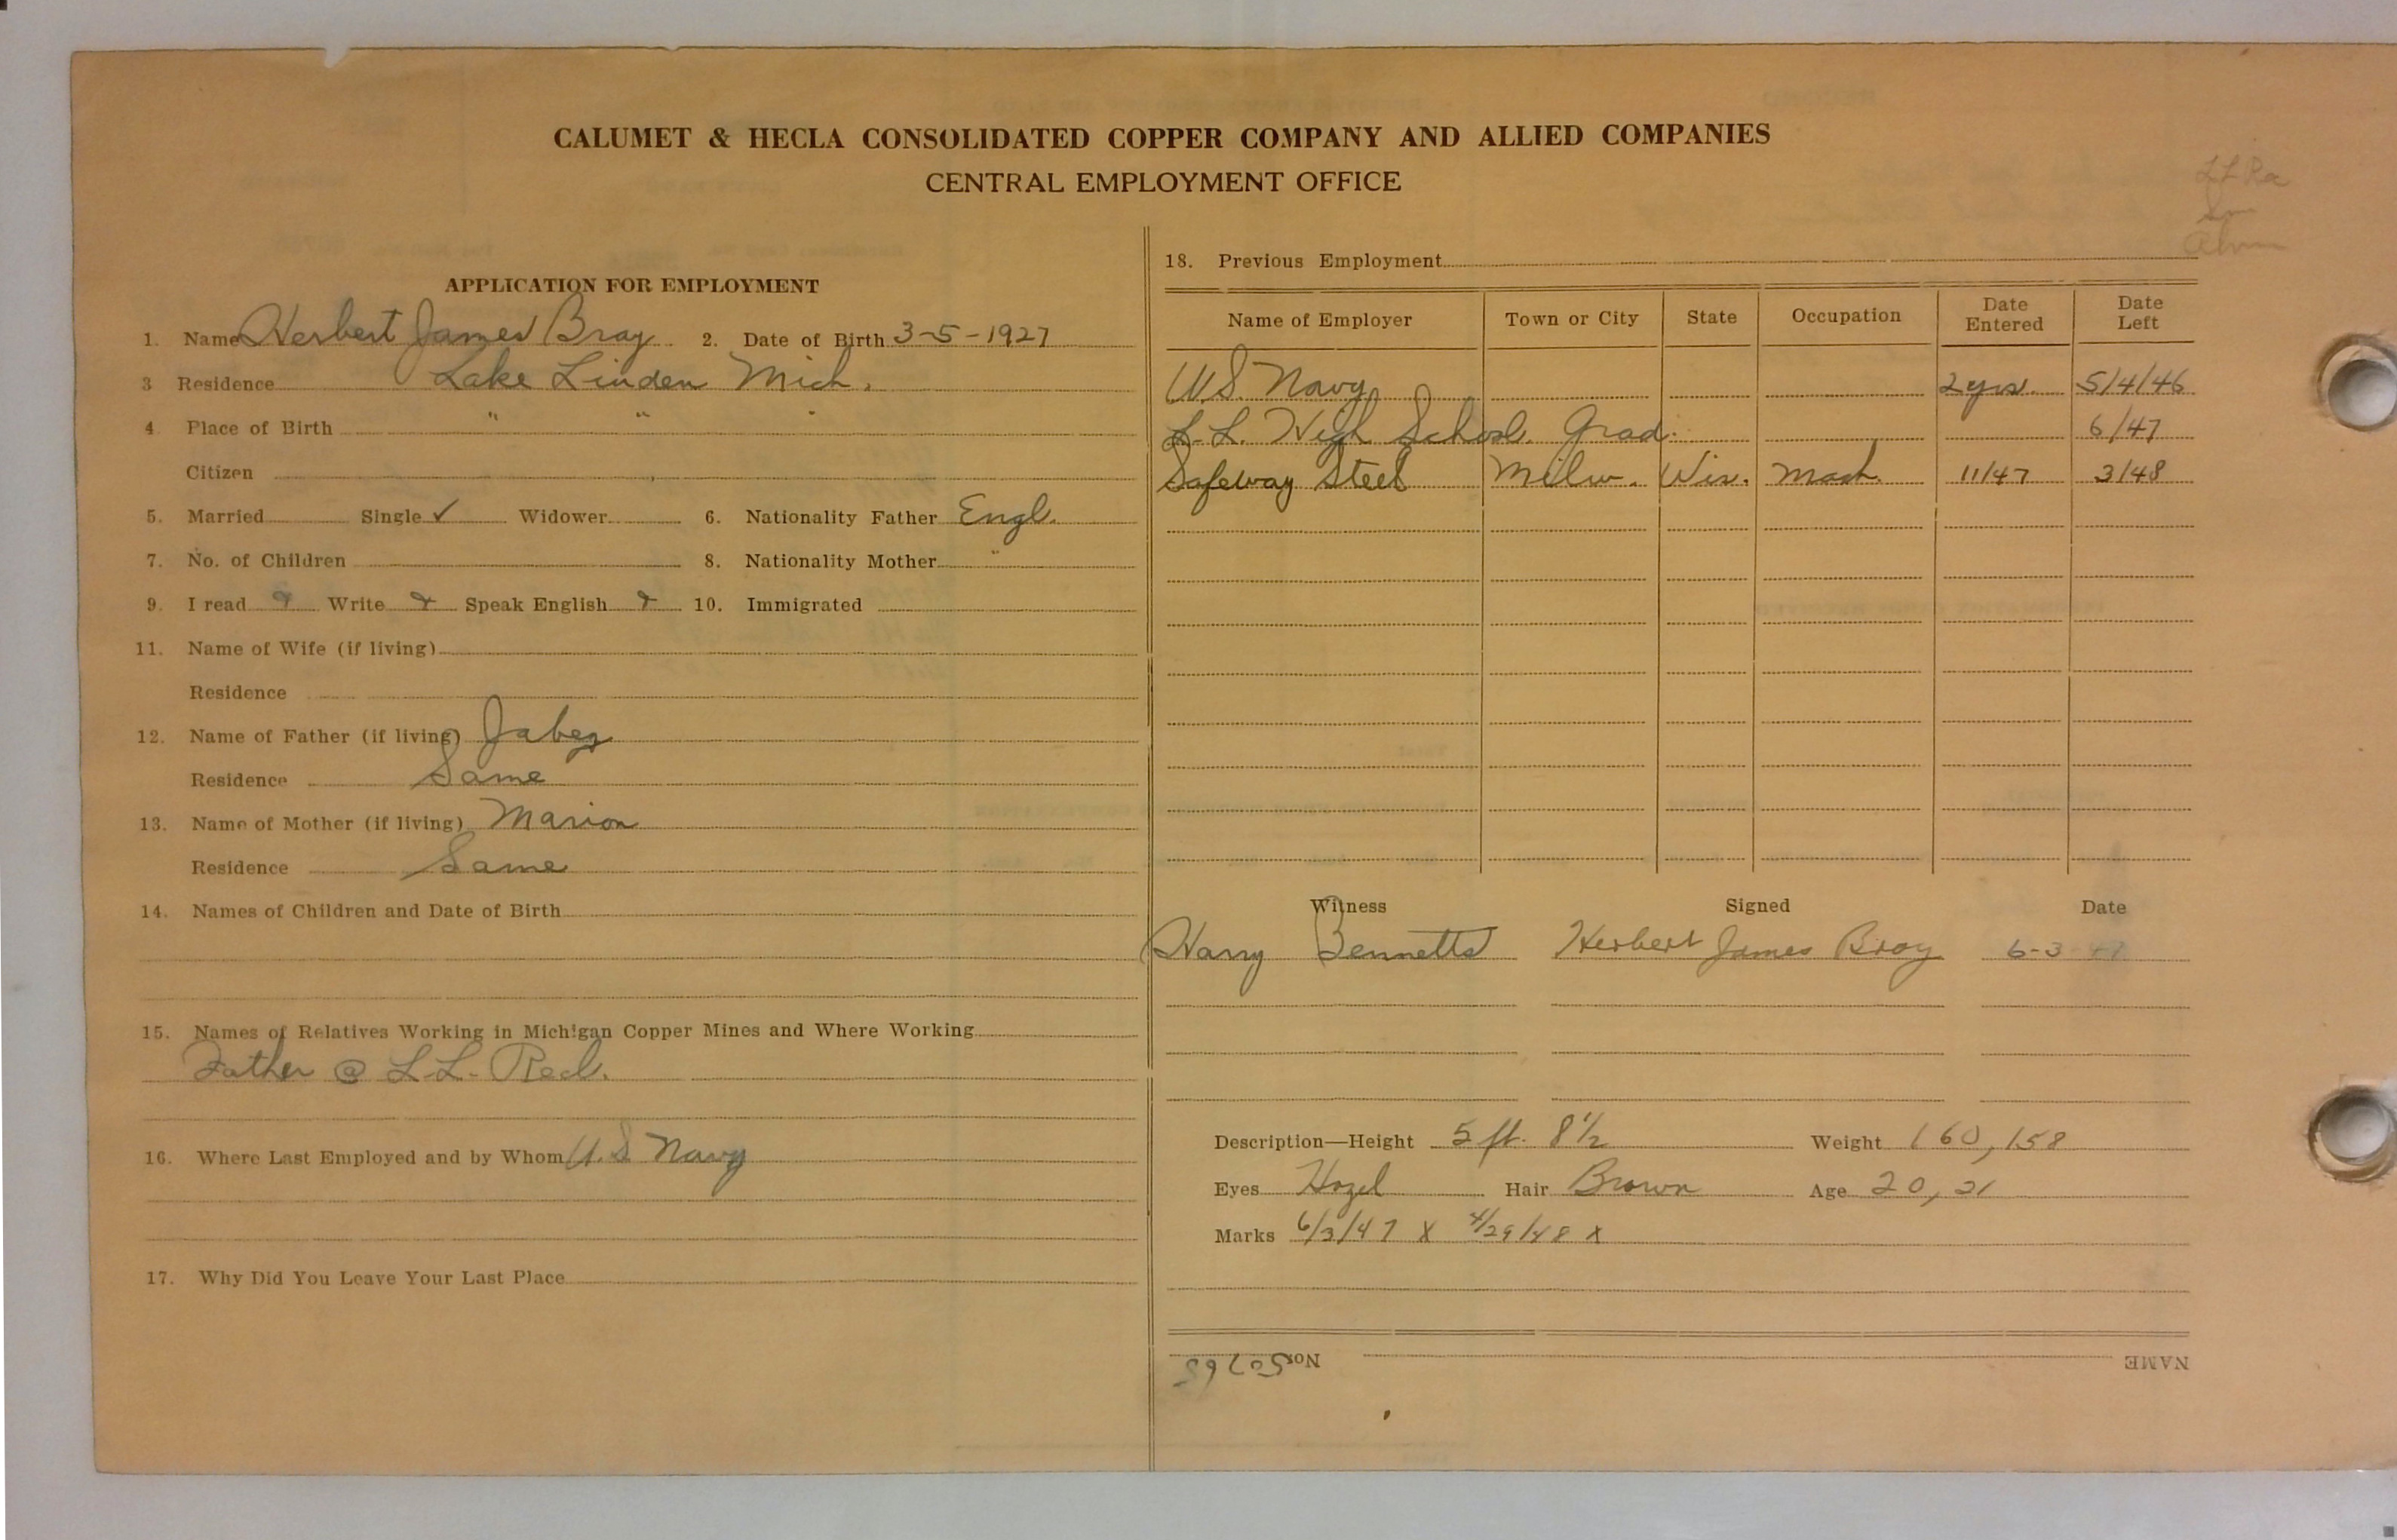 CALUMET & HECLA CONSOLIDATED COPPER COMPANY AND ALLIED COMPANIES
CENTRAL EMPLOYMENT OFFICE
APPLICATION FOR EMPLOYMENT
1. Name Herbert James Bray 2. Date of Birth 3-5-1927
3 Residence Lake Linden Mich.
4. Place of Birth " " "
Citizen
5. Married Single ✓ Widower 6. Nationality Father Engl.
7. No. of Children 8. Nationality Mother "
9. I read Write Speak English 10. Immigrated
11. Name of Wife (if living)
Residence
12. Name of Father (if living) Jabez
Residence Same
13. Name of Mother (if living) Marion
Residence Same
14. Names of Children and Date of Birth
15. Names of Relatives Working in Michigan Copper Mines and Where Working
Father @ L.L. Recl.
16. Where Last Employed and by Whom U.S Navy
17. Why Did You Leave Your Last Place
18. Previous Employment
Name of Employer Town or City State Occupation Date Entered Date Left
U.S. Navy 2 yrs. 5/4/46
L.L. High School Grad. 6/47
Safeway Steel Milw. Wis. Mach. 11/47 3/48
Witness Signed Date
Harry Bennetts Herbert James Bray 6-3-47
Description—Height 5 ft. 8 1/2 Weight 160, 158
Eyes Hazel Hair Brown Age 20, 21
Marks 6/3/47 X 4/29/48 X
NAME No. 50765